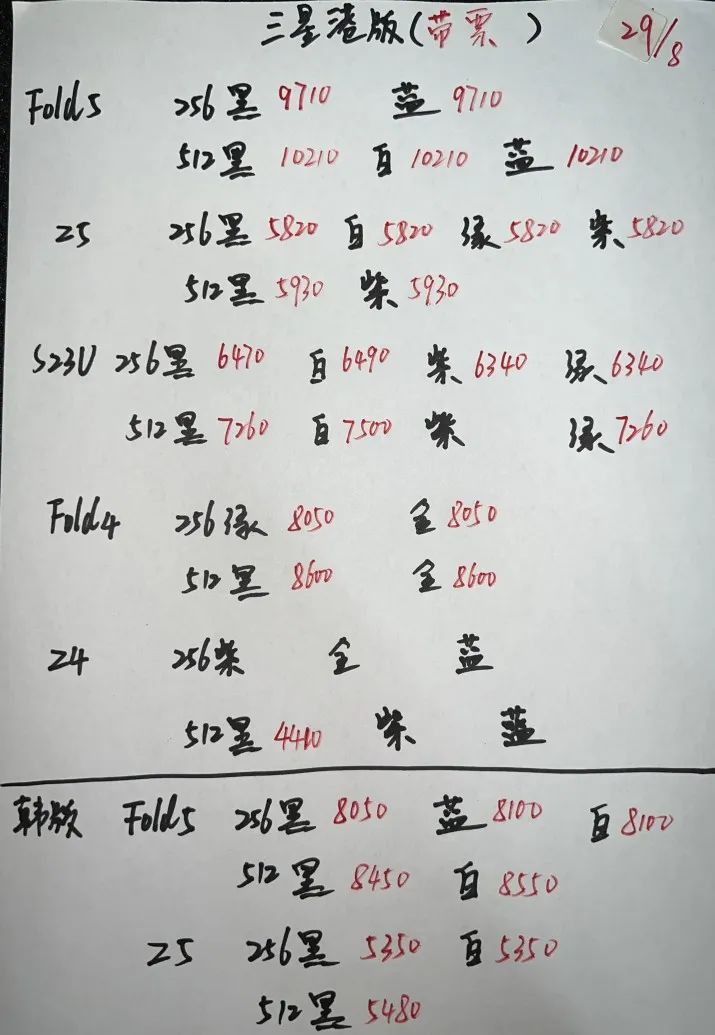 三星港版(带票)
29/8
Fold5 256黑 9710 蓝 9710
512黑 10210 白 10210 蓝 10210
Z5 256黑 5820 白 5820 绿 5820 紫 5820
512黑 5930 紫 5930
S23U 256黑 6470 白 6490 紫 6340 绿 6340
512黑 7260 白 7500 紫 绿 7260
Fold4 256绿 8050 金 8050
512黑 8600 金 8600
Z4 256紫 金 蓝
512黑 4410 紫 蓝
韩版 Fold5 256黑 8050 蓝 8100 白 8100
512黑 8450 白 8550
Z5 256黑 5350 白 5350
512黑 5480